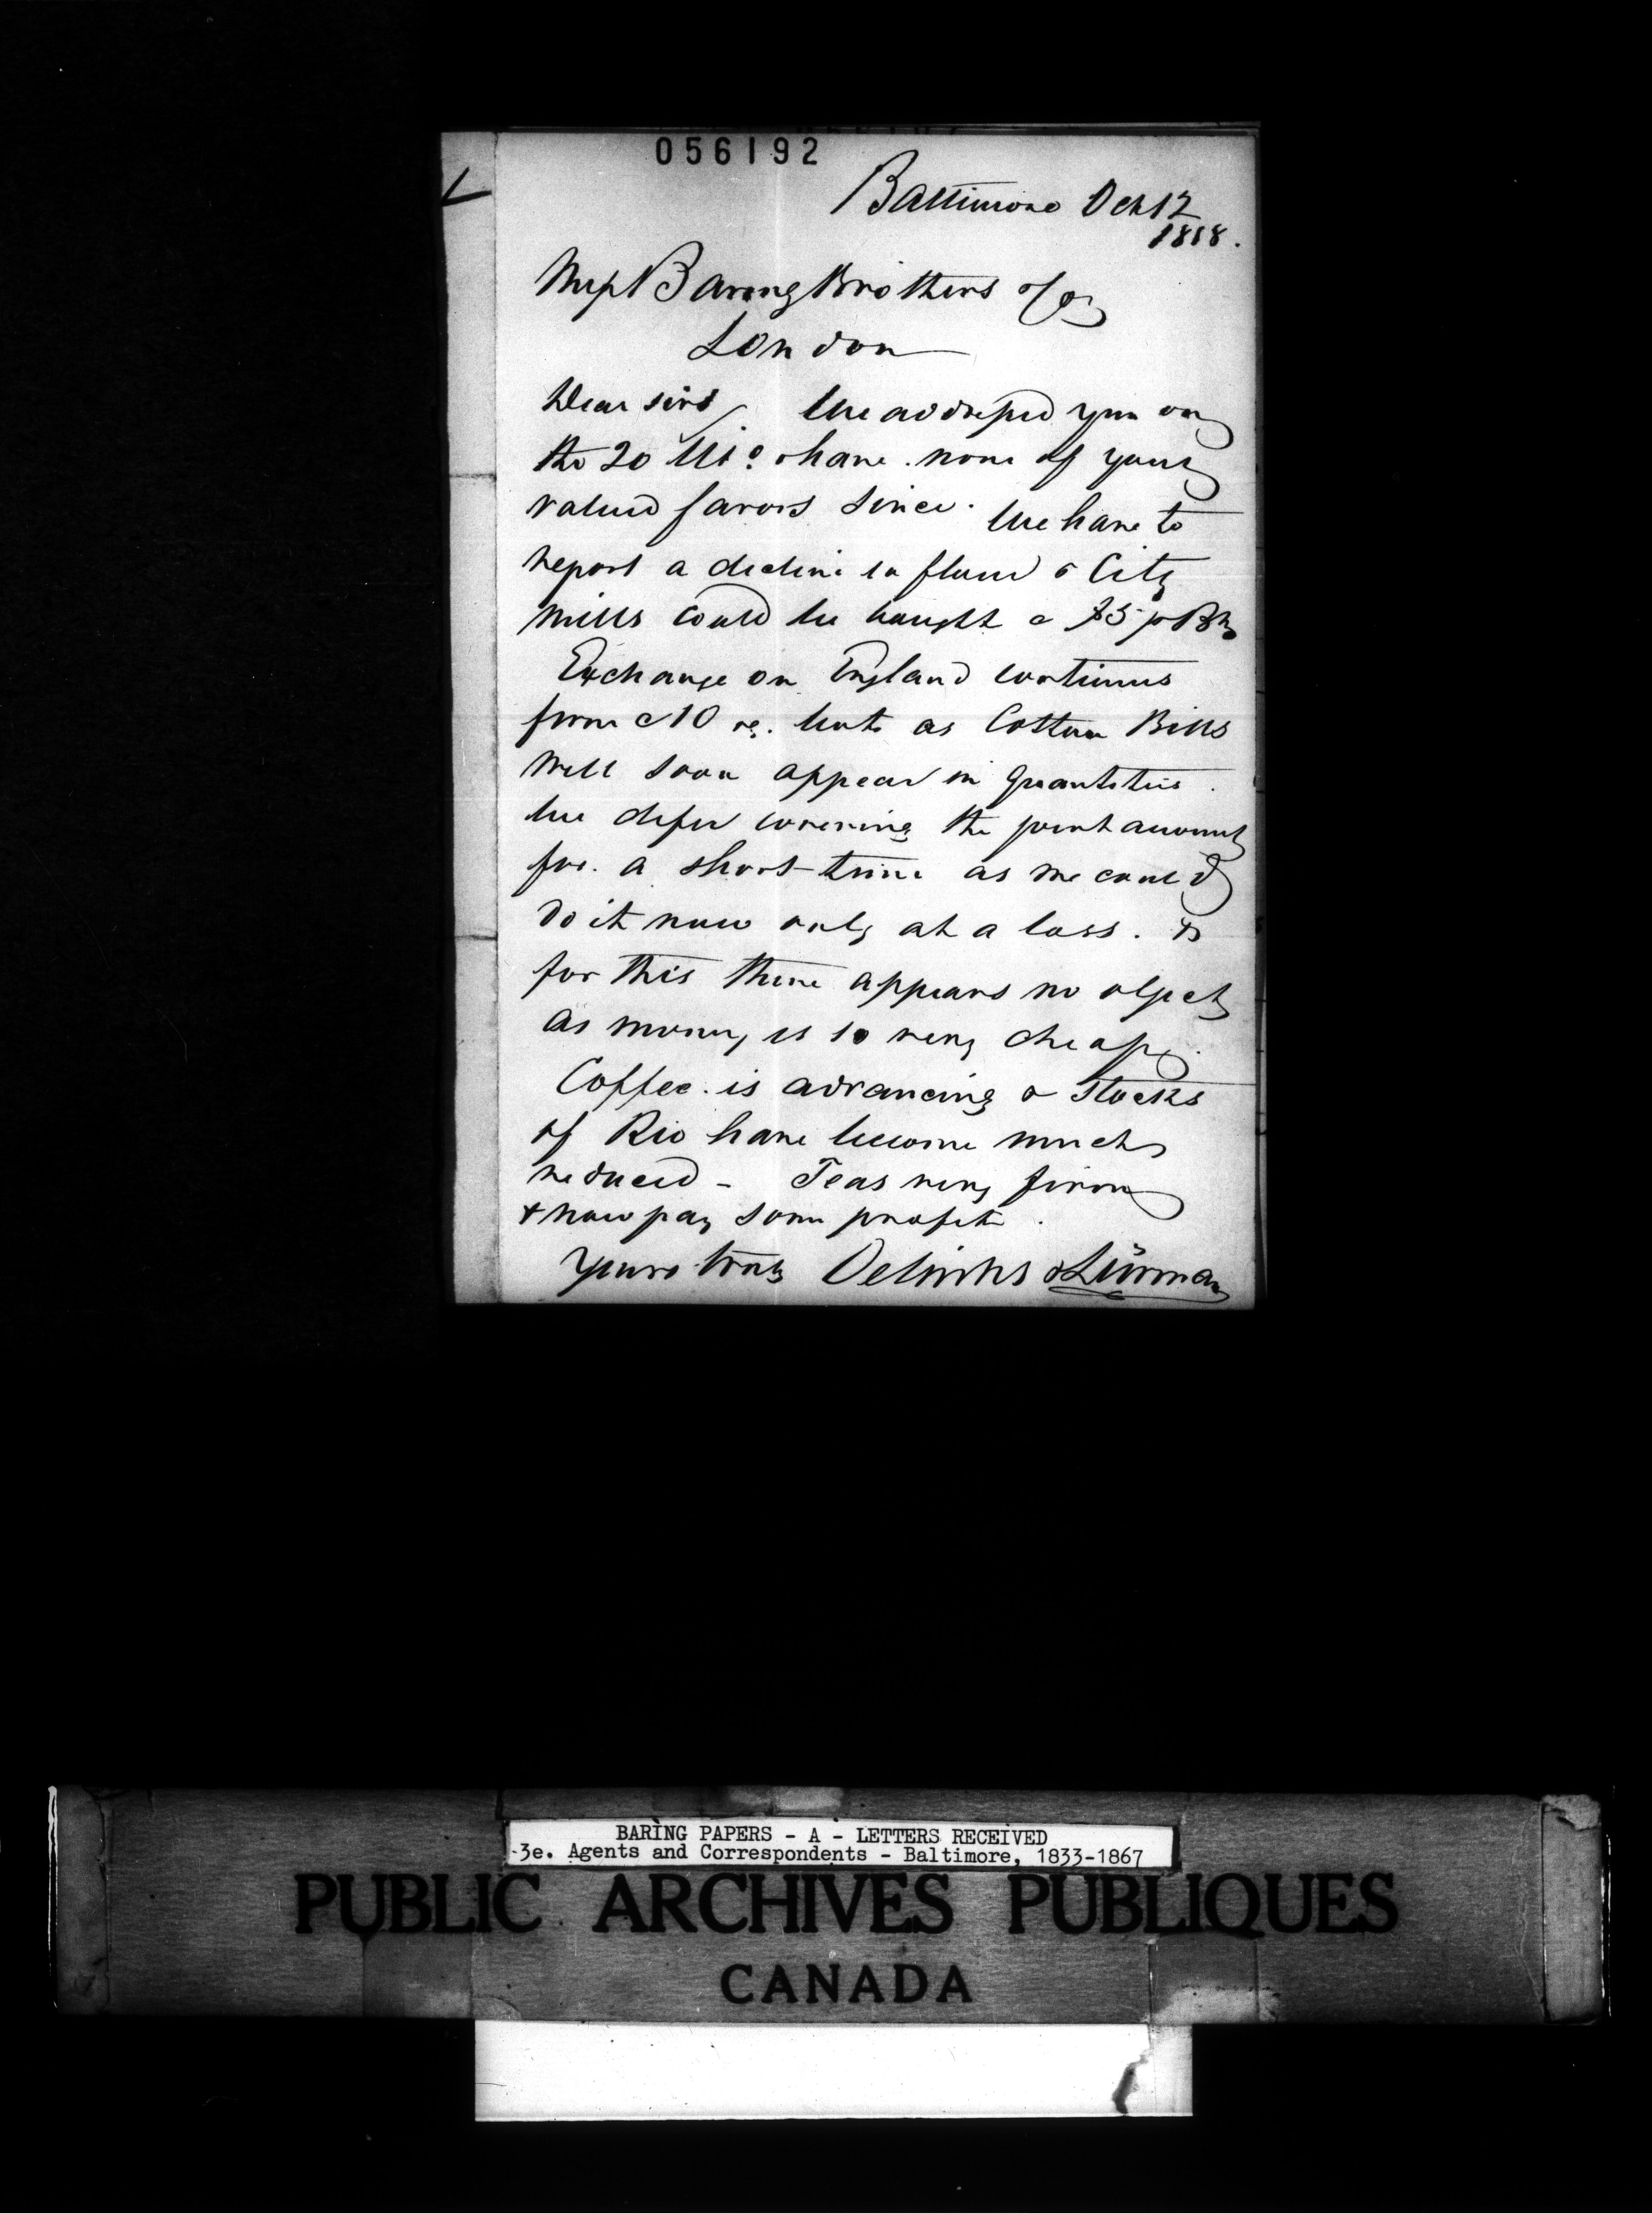 056192
Baltimore Oct 12
1858.
Mess Baring Brothers & Co
London
Dear sirs We addressed you on
the 20 Ulto. & have none of your
valued favors since. We have to
report a decline in flour & City
mills could be bought a $5 p Bb
Exchange on England continues
firm a 10 but as Cotton Bills
will soon appear in quantities
we defer covering the joint account
for a short time as we could
do it now only at a loss. &
for this there appears no object
as money is so very cheap.
Coffee is advancing & stocks
of Rio have become much
reduced - Teas very firm
& now pay some profit.
Yours truly Oelrichs & Lürman
BARING PAPERS - A - LETTERS RECEIVED
3e. Agents and Correspondents - Baltimore, 1833-1867
PUBLIC ARCHIVES PUBLIQUES
CANADA